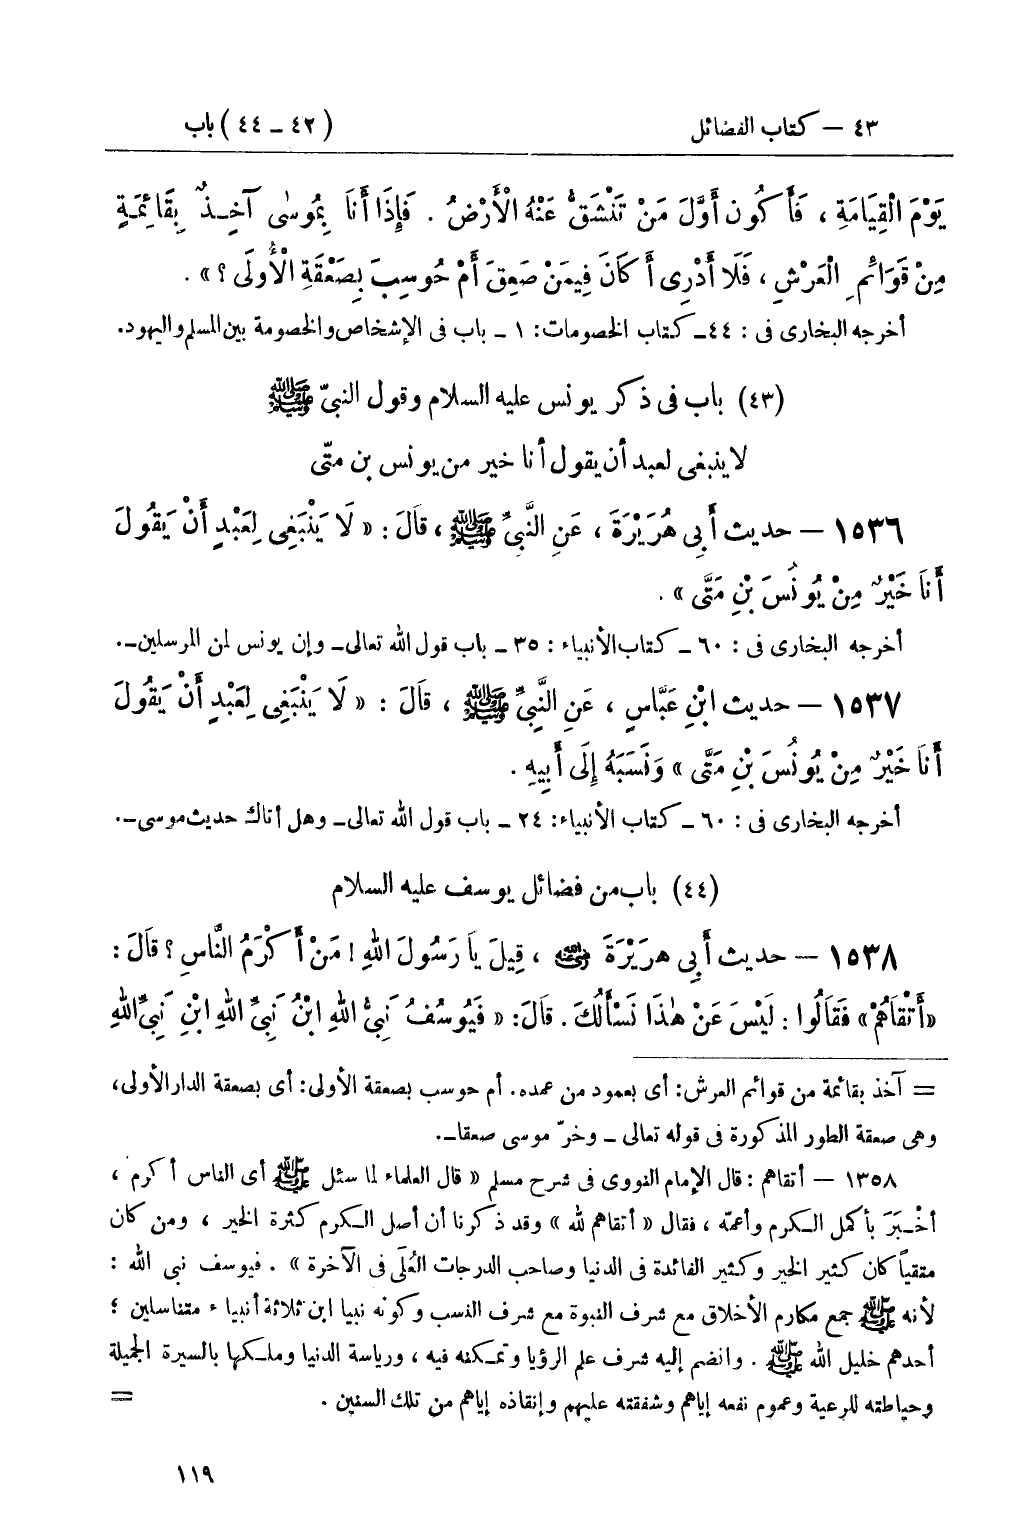 ٤٣ – كتاب الفضائل (٤٢ – ٤٤) باب
يَوْمَ الْقِيَامَةِ ، فَأَكُون أَوَّلَ مَنْ تَنْشَقُّ عَنْهُ الْأَرْضُ . فَإِذَا أَنَا بِمُوسٰى آخِـذٌ بِقَائِمَةٍ
مِنْ قَوَائِمِ الْعَرْشِ ، فَلَا أَدْرِى أَكَانَ فِيمَنْ صَعِقَ أَمْ حُوسِبَ بِصَعْقَةِ الْأُولَى ؟ » .
أخرجه البخارى فى : ٤٤ ــ كتاب الخصومات : ١ – باب فى الإشخاص والخصومة بين المسلم واليهود.
(٤٣) باب فى ذكر يونس عليه السلام وقول النبىّ ﷺ
لا ينبغى لعبد أن يقول أنا خير من يونس بن متّى
١٥٣٦ – حديث أَبِى هُرَيْرَةَ ، عَنِ النَّبِىِّ ﷺ ، قَالَ : « لَا يَنْبَغِى لِعَبْدٍ أَنْ يَقُولَ
أَنَا خَيْرٌ مِنْ يُونُسَ بْنِ مَتَّى » .
أخرجه البخارى فى : ٦٠ ــ كتاب الأنبياء : ٣٥ – باب قول الله تعالى ــ وإن يونس لمن المرسلين ــ.
١٥٣٧ – حديث ابْنِ عَبَّاسٍ ، عَنِ النَّبِىِّ ﷺ ، قَالَ : « لَا يَنْبَغِى لِعَبْدٍ أَنْ يَقُولَ
أَنَا خَيْرٌ مِنْ يُونُسَ بْنِ مَتَّى » وَنَسَبَهُ إِلَى أَبِيهِ .
أخرجه البخارى فى : ٦٠ ــ كتاب الأنبياء : ٢٤ – باب قول الله تعالى ــ وهل أتاك حديث موسى ــ.
(٤٤) باب من فضائل يوسف عليه السلام
١٥٣٨ – حديث أَبِى هرَيْرَةَ رضي الله عنه ، قِيلَ يَا رَسُولَ اللهِ ! مَنْ أَكْرَمُ النَّاسِ ؟ قَالَ :
« أَتْقَاهُمْ » فَقَالُوا : لَيْسَ عَنْ هٰذَا نَسْأَلُكَ . قَالَ : « فَيُوسُفُ نَبِىُّ اللهِ ابْنُ نَبِىِّ اللهِ ابْنِ نَبِىِّ اللهِ
= آخذ بقائمة من قوائم العرش : أى بعمود من عمده . أم حوسب بصعقة الأولى : أى بصعقة الدار الأولى ،
وهى صعقة الطور المذكورة فى قوله تعالى ــ وخرّ موسى صعقا ــ.
١٣٥٨ – أتقاهم : قال الإمام النووى فى شرح مسلم « قال العلماء لما سئل ﷺ أى الناس أكرم ،
أخْـبَرَ بأكمل الـكرم وأعمّه ، فقال « أتقاهم لله » وقد ذكرنا أن أصل الـكرم كثرة الخير ، ومن كان
متقياً كان كثير الخير وكثير الفائدة فى الدنيا وصاحب الدرجات العُلَى فى الآخرة » . فيوسف نبى الله :
لأنه ﷺ جمع مكارم الأخلاق مع شرف النبوة مع شرف النسب وكونه نبيا ابن ثلاثة أنبياء متناسلين ؛
أحدهم خليل الله ﷺ . وانضم إليه شرف علم الرؤيا وتمـكنه فيه ، ورياسة الدنيا وملـكها بالسيرة الجميلة
وحياطته للرعية وعموم نفعه إياهم وشفقته عليهم وإنقاذه إياهم من تلك السنين . =
١١٩